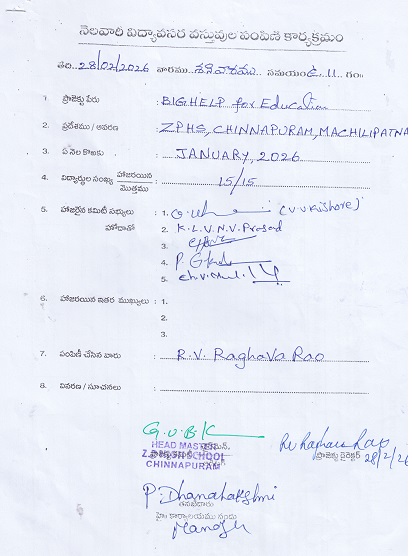 నెలవారి విద్యావసర వస్తువుల పంపిణి కార్యక్రమం
తేది. 28/02/2026 వారము.. శనివారము.. సమయం ఉ. 11. గం॥
1. ప్రాజెక్టు పేరు : BIG HELP for Education
2. ప్రదేశము / ఆవరణ : ZPHS, CHINNAPURAM, MACHILIPATNA
3. ఏ నెల కొఱకు : JANUARY, 2026
4. విద్యార్ధుల సంఖ్య హాజరయిన / మొత్తము : 15/15
5. హాజరైన కమిటీ సభ్యులు : 1. (V V Kishore)
హోదాతో 2. K.L.V.N.V. Prasad
3.
4. P.
5. Ch.V.
6. హాజరయిన ఇతర ముఖ్యులు : 1.
2.
3.
7. పంపిణీ చేసిన వారు : R.V. Raghava Rao
8. వివరణ / సూచనలు :
G.V.B.K
HEAD MASTER
SCHOOL
CHINNAPURAM
RV Raghava Rao
ప్రాజెక్టు డైరెక్టర్ 28/2/26
P. Dhanalakshmi
Manager